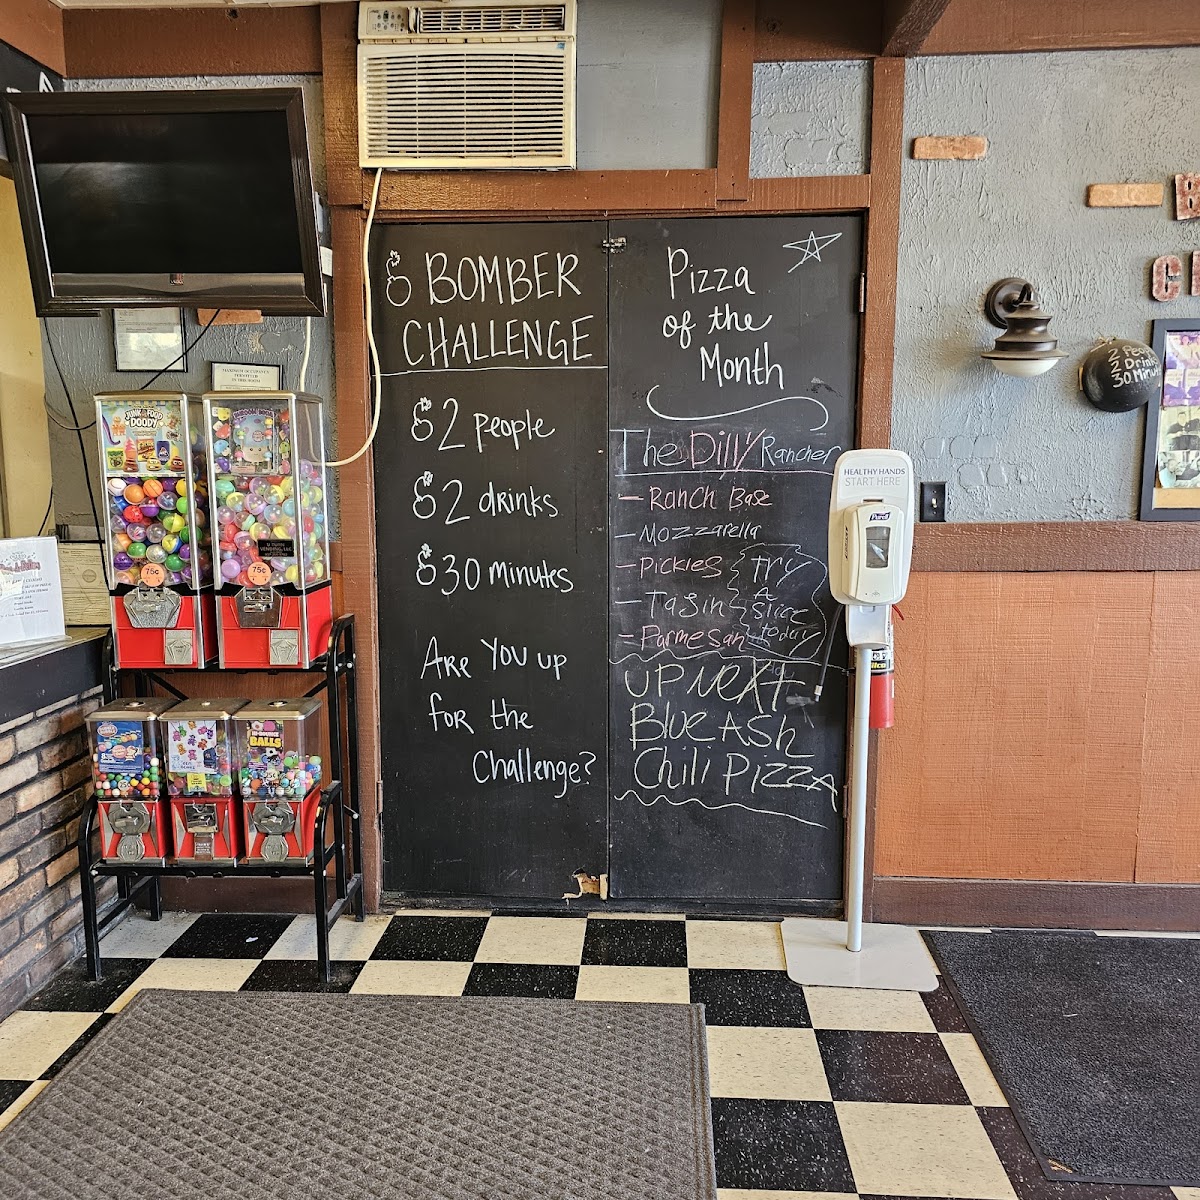 BOMBER
CHALLENGE
2 people
2 drinks
30 minutes
Are You up
for the
Challenge?
Pizza
of the
Month
The Dilly Rancher
- Ranch Base
- Mozzarella
- Pickles
- Tajin
- Parmesan
Try
A
Slice
today
UP NEXT
Blue Ash
Chili Pizza
HEALTHY HANDS
START HERE
Purell
2 Peo
2 Drin
30 Minut
JUNK FOOD
DOODY
75¢
75¢
HI-BOUNCE
BALLS